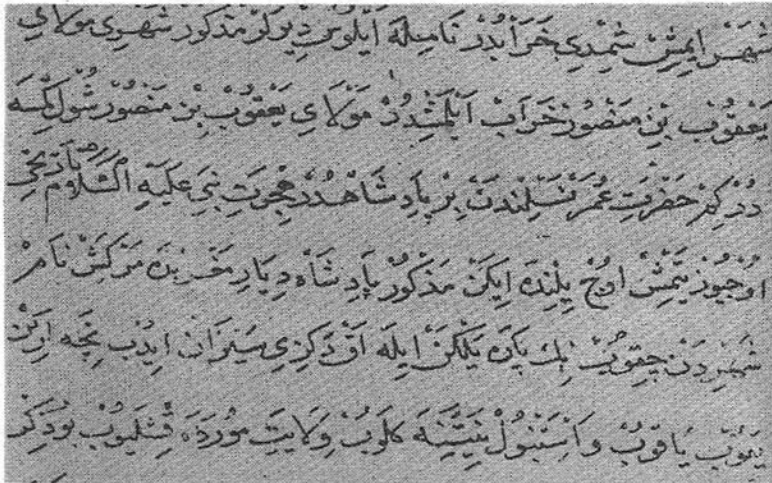 شَهَرْ ايمِشْ شِمْدِي خَرَابْدُرْ نَامِيلَه ايلُوسْ دِيرلَرْ مَذكُورْ شَهْرِى مَوْلَاىِ
يَعْقُوبْ بِنْ مَنْصُورْ خَرَابْ اَيْلَمِشْدُرْ مَوْلَاىِ يَعْقُوبْ بِنْ مَنْصُورْ شُولْ كِمْسَه
دُرْ كِمْ حَضْرَتِ عُمَرْ نَسْلِنْدَنْ بِرْ پَادِشَاهْدُرْ هِجْرَتِ نَبِي عَلَيْهِ السَّلَامْ تَارِيخِى
اوُچيُوزْ يَتْمِشْ اوُچْ يِلِنْدَه اِيكَنْ مَذْكُورْ پَادِشَاه دِيَارِ مَغْرِبْدَه مَرَكَشْ نَامْ
شَهِرْدَنْ چِقُوبْ بِيكْ پَارَه يَلْكَنْ اِيلَه آقْ دَكِزِى سَيَرَانْ ايدُبْ نِچَه
ياقُوبْ وَ اِسْتَنْبُولْ نِيَّتِنَه كَلُوبْ وِلَايَتِ مُورَدَه قِشْلَيُوبْ بُو دَكِزْ